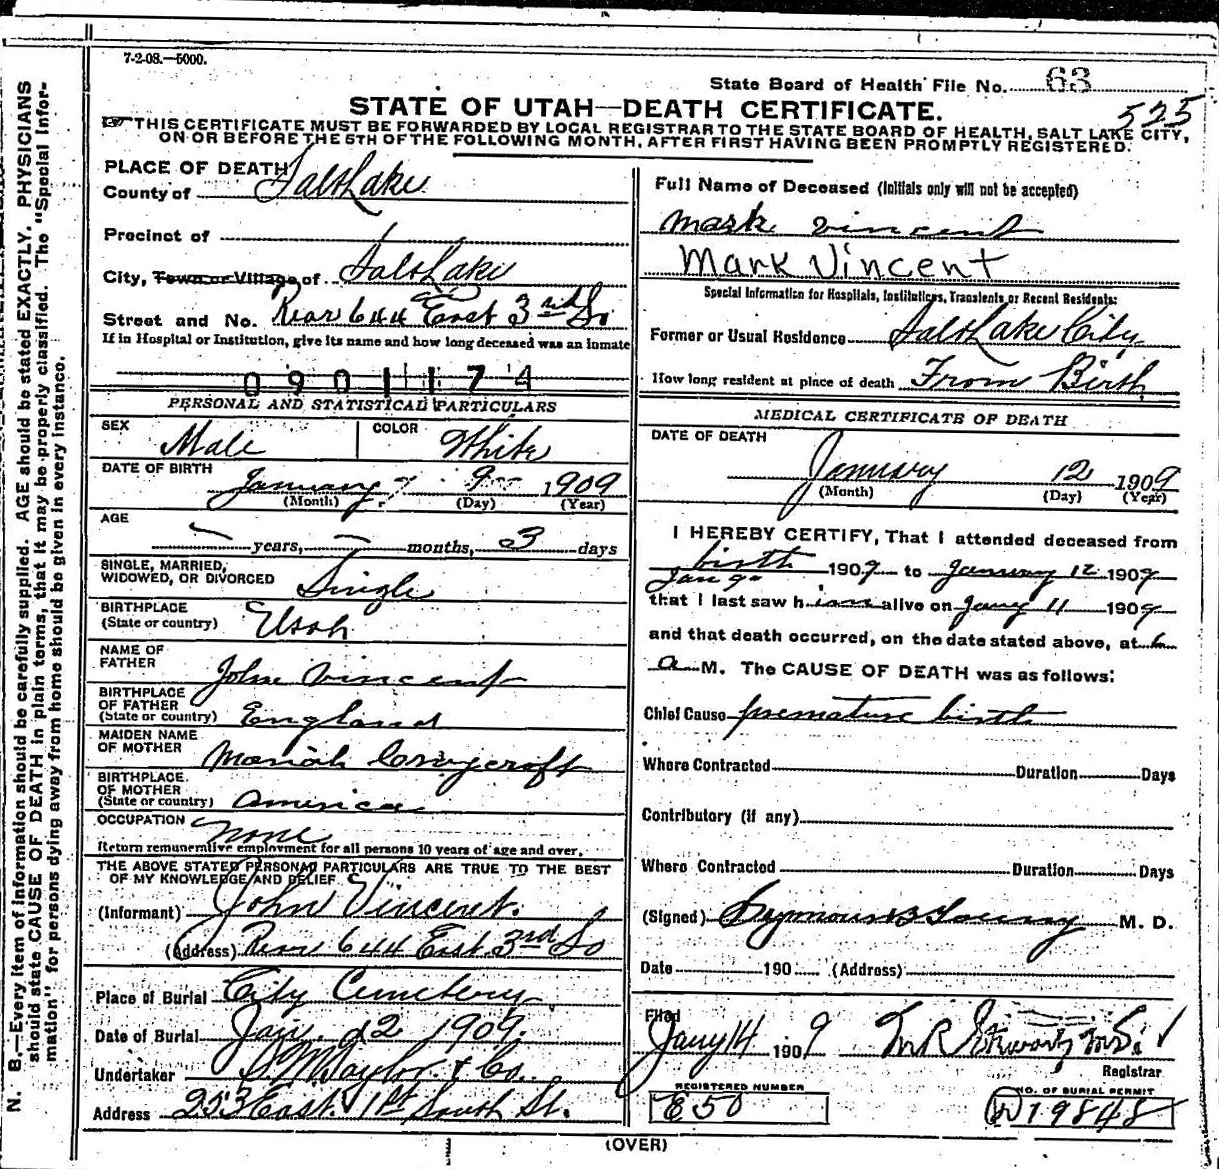 7-2-08.—5000.
State Board of Health File No. 63
525
STATE OF UTAH—DEATH CERTIFICATE.
THIS CERTIFICATE MUST BE FORWARDED BY LOCAL REGISTRAR TO THE STATE BOARD OF HEALTH, SALT LAKE CITY,
ON OR BEFORE THE 5TH OF THE FOLLOWING MONTH, AFTER FIRST HAVING BEEN PROMPTLY REGISTERED.
N. B.—Every item of information should be carefully supplied. AGE should be stated EXACTLY. PHYSICIANS
should state CAUSE OF DEATH in plain terms, that it may be properly classified. The "Special Infor-
mation" for persons dying away from home should be given in every instance.
PLACE OF DEATH
County of Salt Lake
Precinct of
City, Town or Village of Salt Lake
Street and No. Rear 644 East 3rd So
If in Hospital or Institution, give its name and how long deceased was an inmate
0901174
PERSONAL AND STATISTICAL PARTICULARS
SEX Male COLOR White
DATE OF BIRTH January 9 1909
(Month) (Day) (Year)
AGE
years, months, 3 days
SINGLE, MARRIED,
WIDOWED, OR DIVORCED Single
BIRTHPLACE
(State or country) Utah
NAME OF
FATHER John Vincent
BIRTHPLACE
OF FATHER
(State or country) England
MAIDEN NAME
OF MOTHER Mariah
BIRTHPLACE
OF MOTHER
(State or country) America
OCCUPATION none
Return remunerative employment for all persons 10 years of age and over.
THE ABOVE STATED PERSONAL PARTICULARS ARE TRUE TO THE BEST
OF MY KNOWLEDGE AND BELIEF
(Informant) John Vincent.
(Address) Rear 644 East 3rd So
Place of Burial City Cemetery
Date of Burial Jan. 12 1909.
Undertaker S M Taylor & Co.
Address 253 East 1st South St.
Full Name of Deceased (Initials only will not be accepted)
Mark Vincent
Mark Vincent
Special Information for Hospitals, Institutions, Transients or Recent Residents:
Former or Usual Residence Salt Lake City
How long resident at place of death From Birth
MEDICAL CERTIFICATE OF DEATH
DATE OF DEATH
January 12 1909
(Month) (Day) (Year)
I HEREBY CERTIFY, That I attended deceased from
birth
Jan 9 1909 to January 12 1909
that I last saw him alive on Jany 11 1909
and that death occurred, on the date stated above, at 6
a M. The CAUSE OF DEATH was as follows:
Chief Cause premature birth
Where Contracted Duration Days
Contributory (if any)
Where Contracted Duration Days
(Signed) Seymour B Young M. D.
Date 190 (Address)
Filed
Jany 14 1909 M R Stewart M.D.
Registrar
REGISTERED NUMBER
E50
NO. OF BURIAL PERMIT
19848
(OVER)